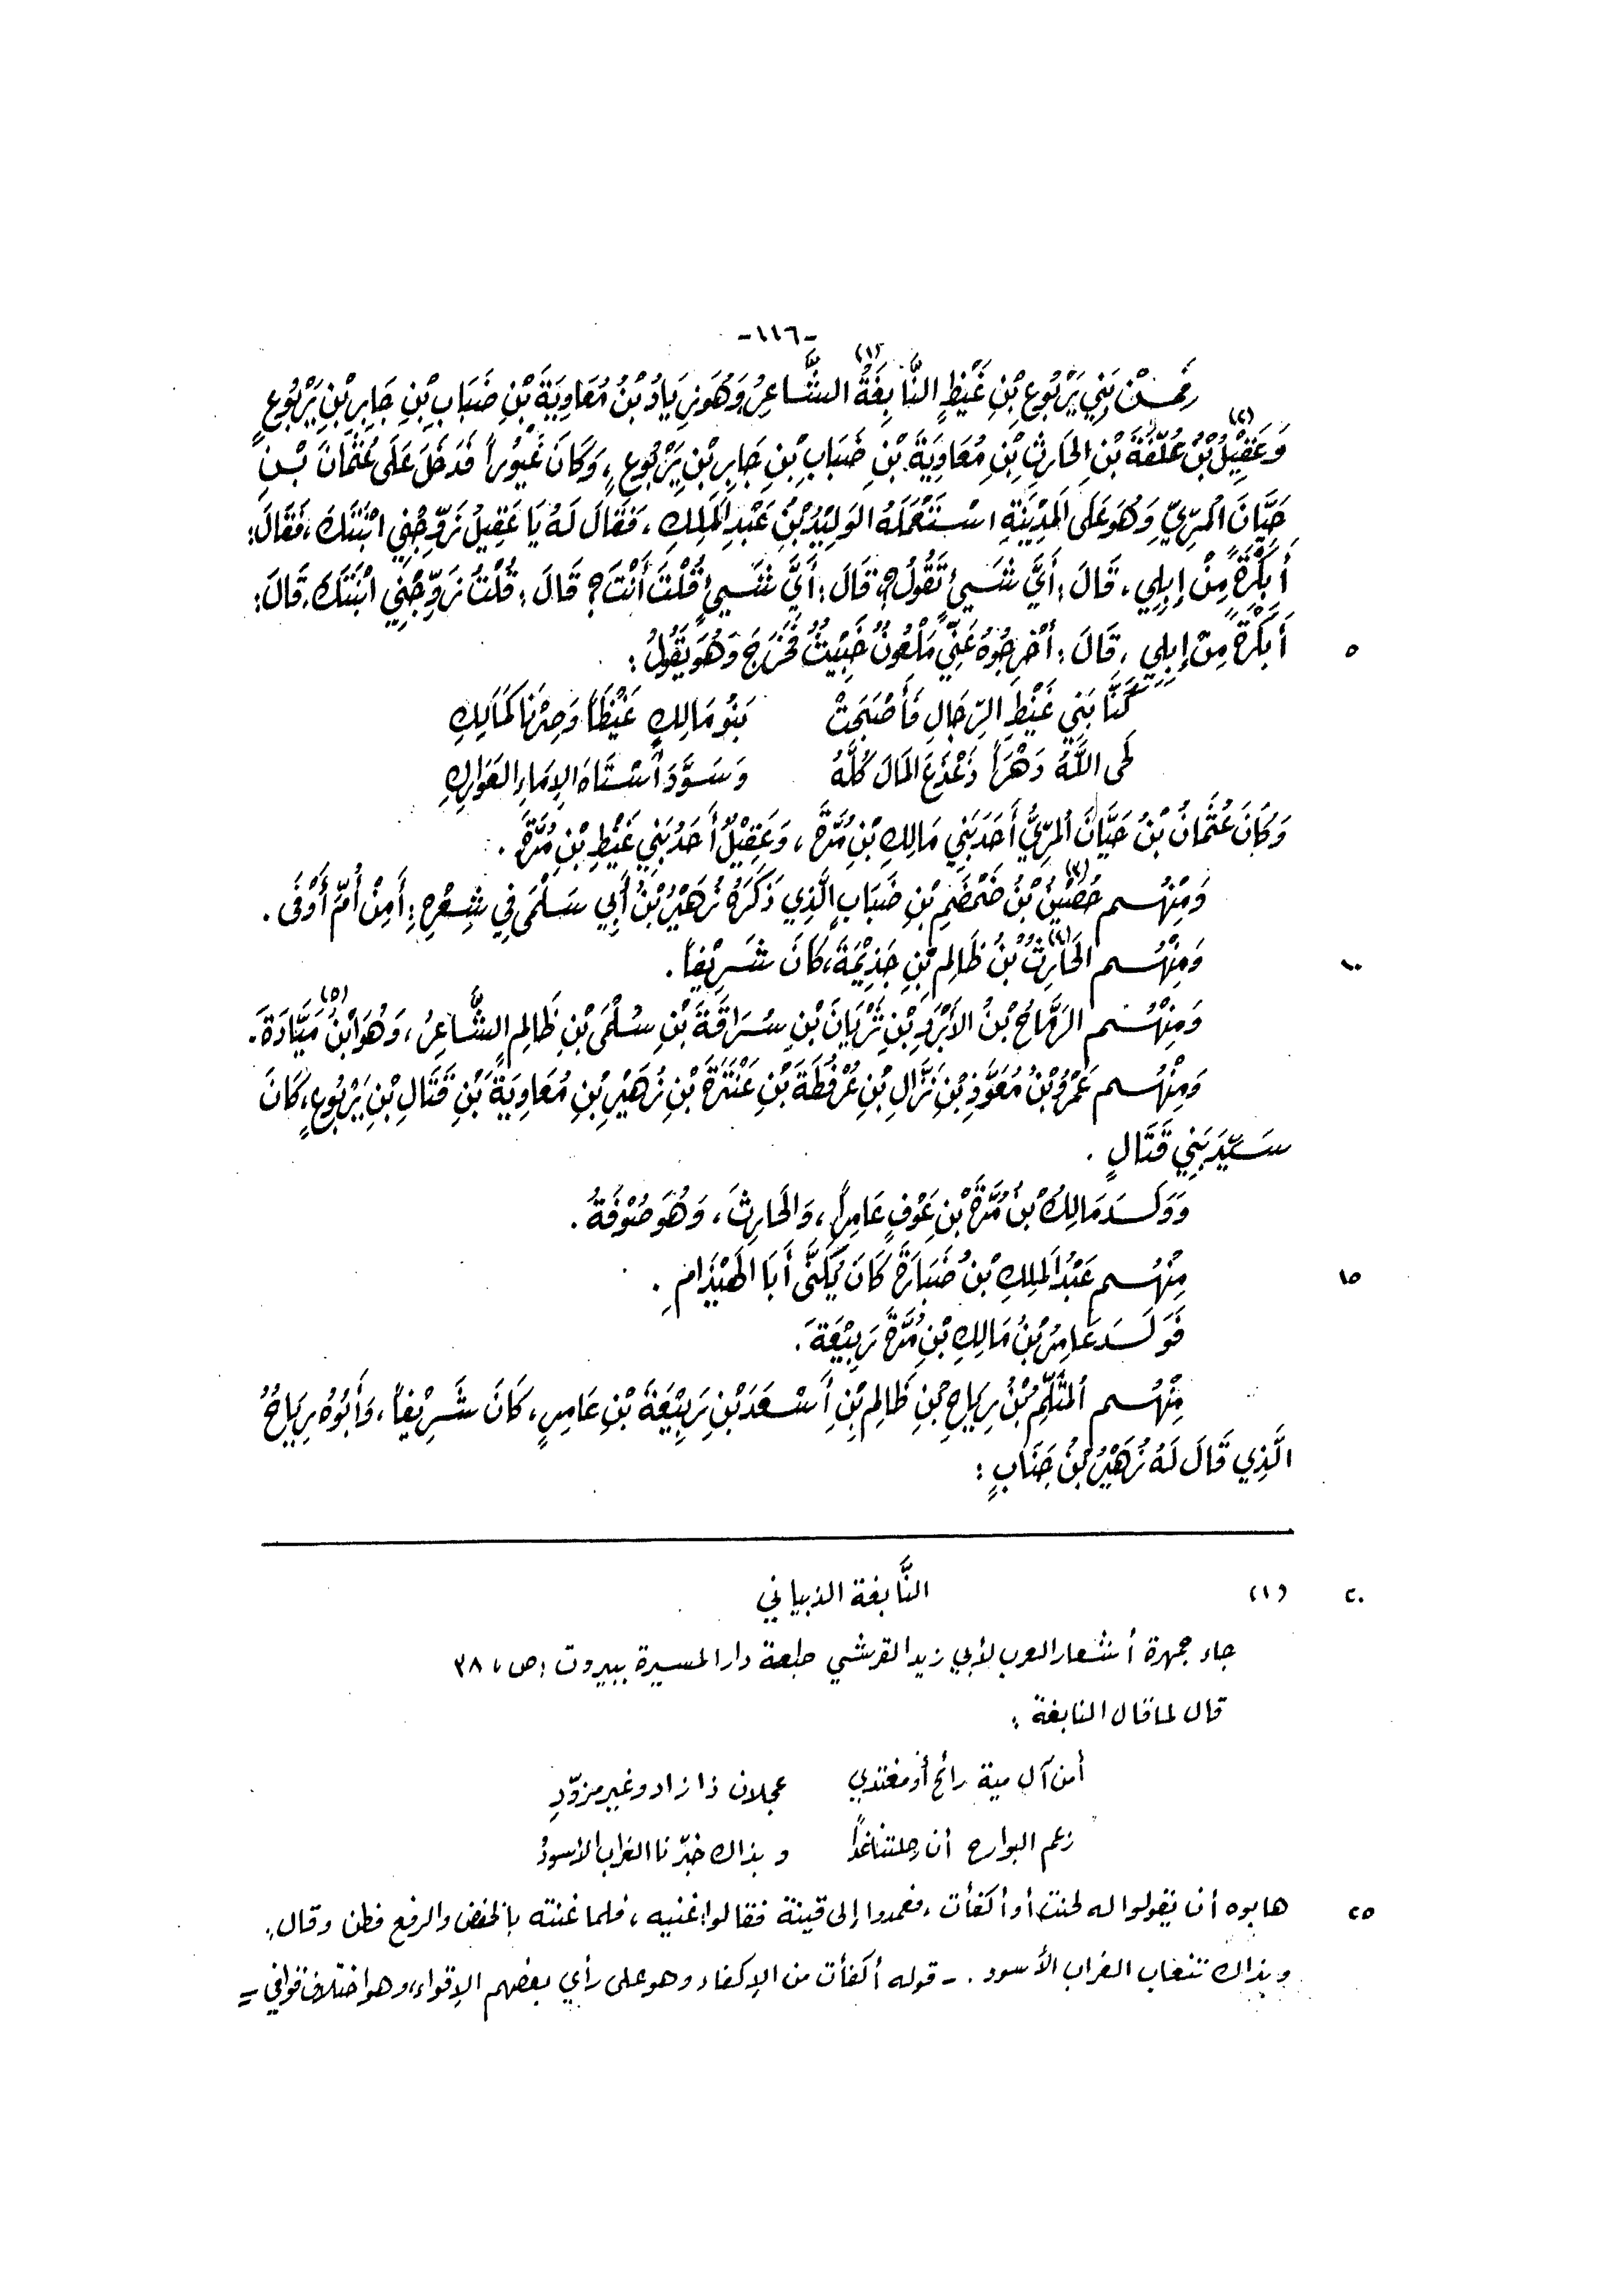 -١١٦-
فَمِنْ بَنِي يَرْبُوعِ بْنِ غَيْظٍ النَّابِغَةُ (١) الشَّاعِرُ وَهُوَ زِيَادُ بْنُ مُعَاوِيَةَ بْنِ ضَبَابِ بْنِ جَابِرِ بْنِ يَرْبُوعٍ
وَعَقِيْلُ (٢) بْنُ عُلَّفَةَ بْنِ الحَارِثِ بْنِ مُعَاوِيَةَ بْنِ ضَبَابِ بْنِ جَابِرِ بْنِ يَرْبُوعٍ، وَكَانَ غَيُوْراً فَدَخَلَ عَلَى عُثْمَانَ بْنِ
حَيَّانَ المُرِّيِّ وَهُوَ عَلَى المَدِيْنَةِ اسْتَعْمَلَهُ الوَلِيْدُ بْنُ عَبْدِ المَلِكِ، فَقَالَ لَهُ يَا عَقِيلُ زَوِّجْنِي ابْنَتَكَ، فَقَالَ:
أَبَكْرَةً مِنْ إِبِلِي، قَالَ: أَيَّ شَيءٍ تَقُولُ؟ قَالَ: أَيَّ شَيءٍ قُلْتَ أَنْتَ؟ قَالَ: قُلْتُ زَوِّجْنِي ابْنَتَكَ، قَالَ:
٥ أَبَكْرَةً مِنْ إِبِلِي، قَالَ: أَخْرِجُوْهُ عَنِّي مَلْعُونٌ خَبِيْثٌ فَخَرَجَ وَهُوَ يَقُوْلُ:
كُنَّا بَنِي غَيْظِ الرِّجَالِ فَأَصْبَحَتْ بَنُو مَالِكٍ غَيْظاً وَصِرْنَا كَمَالِكِ
لَحَى اللَّهُ دَهْراً ذَعْذَعَ المَالَ كُلَّهُ وَسَوَّدَ أَسْتَاهَ الإِمَاءِ العَوَارِكِ
وَكَانَ عُثْمَانُ بْنُ حَيَّانَ المُرِّيُّ أَحَدَ بَنِي مَالِكِ بْنِ مُرَّةَ، وَعَقِيْلٌ أَحَدُ بَنِي غَيْظِ بْنِ مُرَّةَ.
وَمِنْهُم حُصَيْنُ (٣) بْنُ ضَمْضَمِ بْنِ ضَبَابٍ الَّذِي ذَكَرَهُ زُهَيْرُ بْنُ أَبِي سَلْمَى فِي شِعْرِهِ: أَمِنْ أُمِّ أَوْفَى.
١٠ وَمِنْهُم الحَارِثُ (٤) بْنُ ظَالِمِ بْنِ جَذِيْمَةَ، كَانَ شَرِيْفاً.
وَمِنْهُم الرَّمَّاحُ بْنُ الأَبْرَدِ بْنِ ثَرْيَانَ بْنِ سُرَاقَةَ بْنِ سُلْمَى بْنِ ظَالِمٍ الشَّاعِرُ، وَهُوَ ابْنُ (٥) مَيَّادَةَ.
وَمِنْهُم عَمْرُو بْنُ مُعَوَّذِ بْنِ نَزَّالِ بْنِ عُرْفُطَةَ بْنِ عَنْتَرَةَ بْنِ زُهَيْرِ بْنِ مُعَاوِيَةَ بْنِ قَتَّالِ بْنِ يَرْبُوعٍ، كَانَ
سَيِّدَ بَنِي قَتَّالٍ.
وَوَلَدَ مَالِكُ بْنُ مُرَّةَ بْنِ عَوْفٍ عَامِراً، وَالحَارِثَ، وَهُوَ صُوْفَةُ.
١٥ مِنْهُم عَبْدُ المَلِكِ بْنُ ضَبَارَةَ كَانَ يُكَنَّى أَبَا الهَيْذَامِ.
فَوَلَدَ عَامِرُ بْنُ مَالِكِ بْنِ مُرَّةَ رَبِيْعَةَ.
مِنْهُم المُثَلَّمُ بْنُ رِيَاحِ بْنِ ظَالِمِ بْنِ أَسْعَدَ بْنِ رَبِيْعَةَ بْنِ عَامِرٍ، كَانَ شَرِيْفاً، وَأَبُوْهُ رِيَاحٌ
الَّذِي قَالَ لَهُ زُهَيْرُ بْنُ جَنَابٍ:
٢٠ (١) النَّابغة الذبياني
جاء جمهرة أشعار العرب لأبي زيد القرشي طبعة دار المسيرة ببيروت: ص، ٣٨
قال لما قال النابغة:
أمن آل مية رائح أو مغتدي عجلان ذا زاد وغير مزوّدِ
زعم البوارح أن رحلتنا غداً وبذاك خبّرنا الغراب الأسودُ
٢٥ هابوه أن يقولوا له لحنت أو أكفأت، فعمدوا إلى قينة فقالوا: غنيه، فلما غنته بالخفض والرفع فطن وقال:
وبذاك تنعاب الغراب الأسود. - قوله أكفأت من الإكفاء وهو على رأي بعضهم الإقواء، وهو اختلاف قوافي =